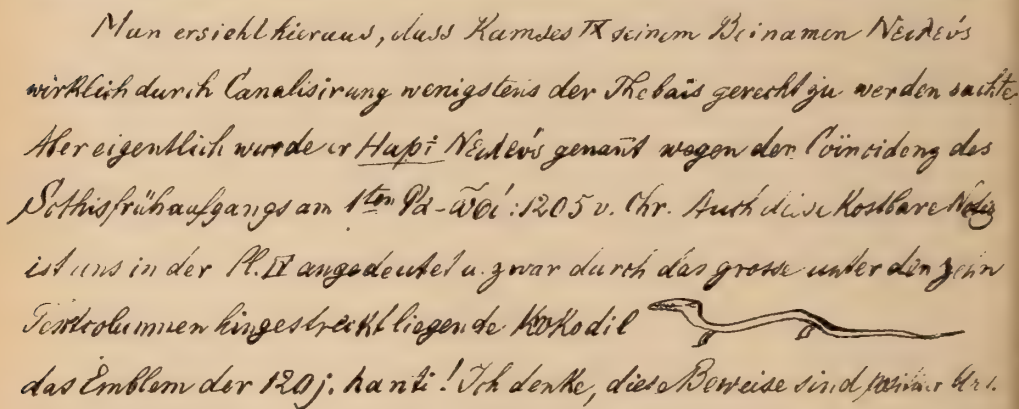 Man ersieht hieraus, dass Ramses IX seinem Beinamen Νειλεύς
wirklich durch Canalisirung wenigstens der Thebaïs gerecht zu werden suchte
Aber eigentlich wurde er Hapi Νειλεύς genan̄t wegen der Coïncidenz des
Sothisfrühaufgangs am 1ten : 1205 v. Chr. Auch diese kostbare Notiz
ist uns in der Pl. IV angedeutet u. zwar durch das grosse unter den zehn
Textcolumnen hingestreckt liegende Krokodil
das Emblem der 120j. hanti! Ich denke, diese Beweise sind